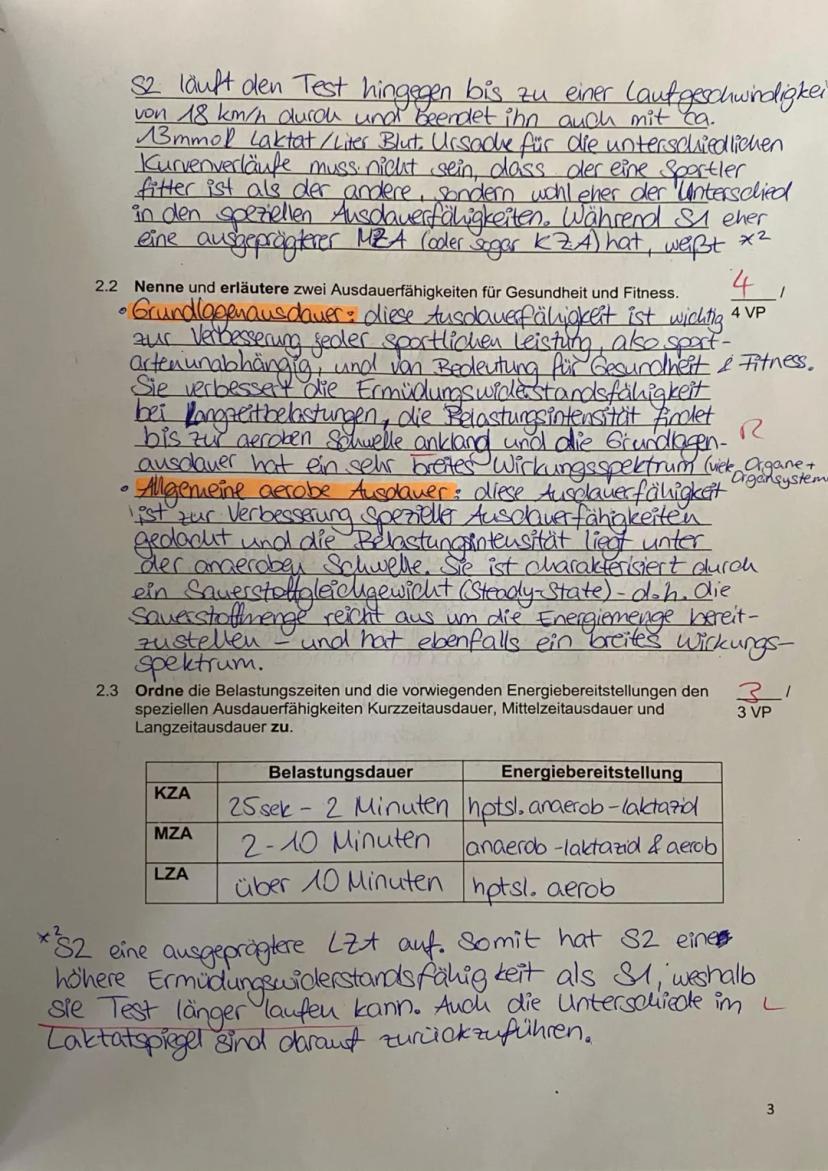 S2 läuft den Test hingegen bis zu einer Laufgeschwindigkei
von 18 km/h durch und beendet ihn auch mit ca.
13mmol Laktat/Liter Blut. Ursache für die unterschiedlichen
Kurvenverläufe muss nicht sein, dass der eine Sportler
fitter ist als der andere, sondern wohl eher der Unterschied
in den speziellen Ausdauerfähigkeiten. Während S1 eher
eine ausgeprägterer MZA (oder sogar KZA) hat, weißt x2
2.2 Nenne und erläutere zwei Ausdauerfähigkeiten für Gesundheit und Fitness. 4 /
4 VP
• Grundlagenausdauer: diese Ausdauerfähigkeit ist wichtig
zur Verbesserung jeder sportlichen Leistung, also sport-
artenunabhängig, und von Bedeutung für Gesundheit & Fitness.
Sie verbessert die Ermüdungswiderstandsfähigkeit
bei Langzeitbelastungen, die Belastungsintensität findet
bis zur aeroben Schwelle anklang und die Grundlagen- R
ausdauer hat ein sehr breites Wirkungsspektrum (viele Organe +
Organsystem
• Allgemeine aerobe Ausdauer: diese Ausdauerfähigkeit
ist zur Verbesserung spezieller Ausdauerfähigkeiten
gedacht und die Belastungsintensität liegt unter
der anaeroben Schwelle. Sie ist charakterisiert durch
ein Sauerstoffgleichgewicht (Steady-State) - d.h. die
Sauerstoffmenge reicht aus um die Energiemenge bereit-
zustellen - und hat ebenfalls ein breites Wirkungs-
spektrum.
2.3 Ordne die Belastungszeiten und die vorwiegenden Energiebereitstellungen den 3 /
speziellen Ausdauerfähigkeiten Kurzzeitausdauer, Mittelzeitausdauer und 3 VP
Langzeitausdauer zu.
Belastungsdauer Energiebereitstellung
KZA 25sek - 2 Minuten hptsl. anaerob-laktazid
MZA 2-10 Minuten anaerob-laktazid & aerob
LZA über 10 Minuten hptsl. aerob
x2 S2 eine ausgeprägtere LZA auf. Somit hat S2 eine
höhere Ermüdungswiderstandsfähigkeit als S1, weshalb
sie Test länger laufen kann. Auch die Unterschiede im L
Laktatspiegel sind darauf zurückzuführen.
3